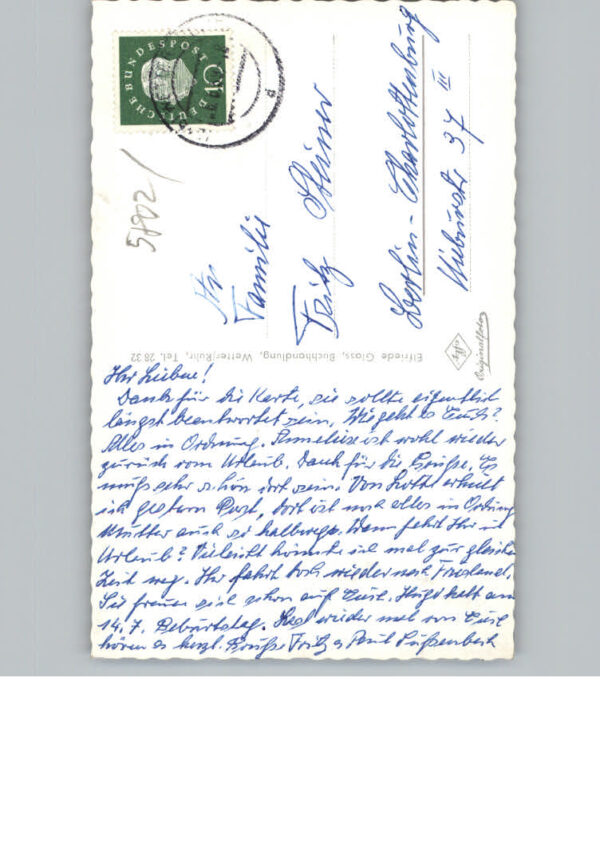 DEUTSCHE BUNDESPOST
10
5802/
An
Familie
Fritz Steiner
Berlin-Charlottenburg
37 III
Elfriede Glass, Buchhandlung, Wetter/Ruhr, Tel. 28 32
Originalfoto
Ihr Lieben!
Dank für die Karte, sie sollte eigentlich
längst beantwortet sein. Wie geht es Euch?
Alles in Ordnung. Anneliese ist wohl wieder
zurück vom Urlaub. Dank für die Grüße. Es
muß sehr schön dort sein. Von erhielt
ich gestern Post, dort ist noch alles in Ordnung
Mutter auch so halbwegs. Wann fahrt Ihr in
Urlaub? Vielleicht könnte ich mal zur gleichen
Zeit weg. Ihr fahrt doch wieder nach Friesland.
Sie freuen sich schon auf Euch. hat am
14.7. Geburtstag. wieder mal von Euch
hören es herzl. Grüße Fritz